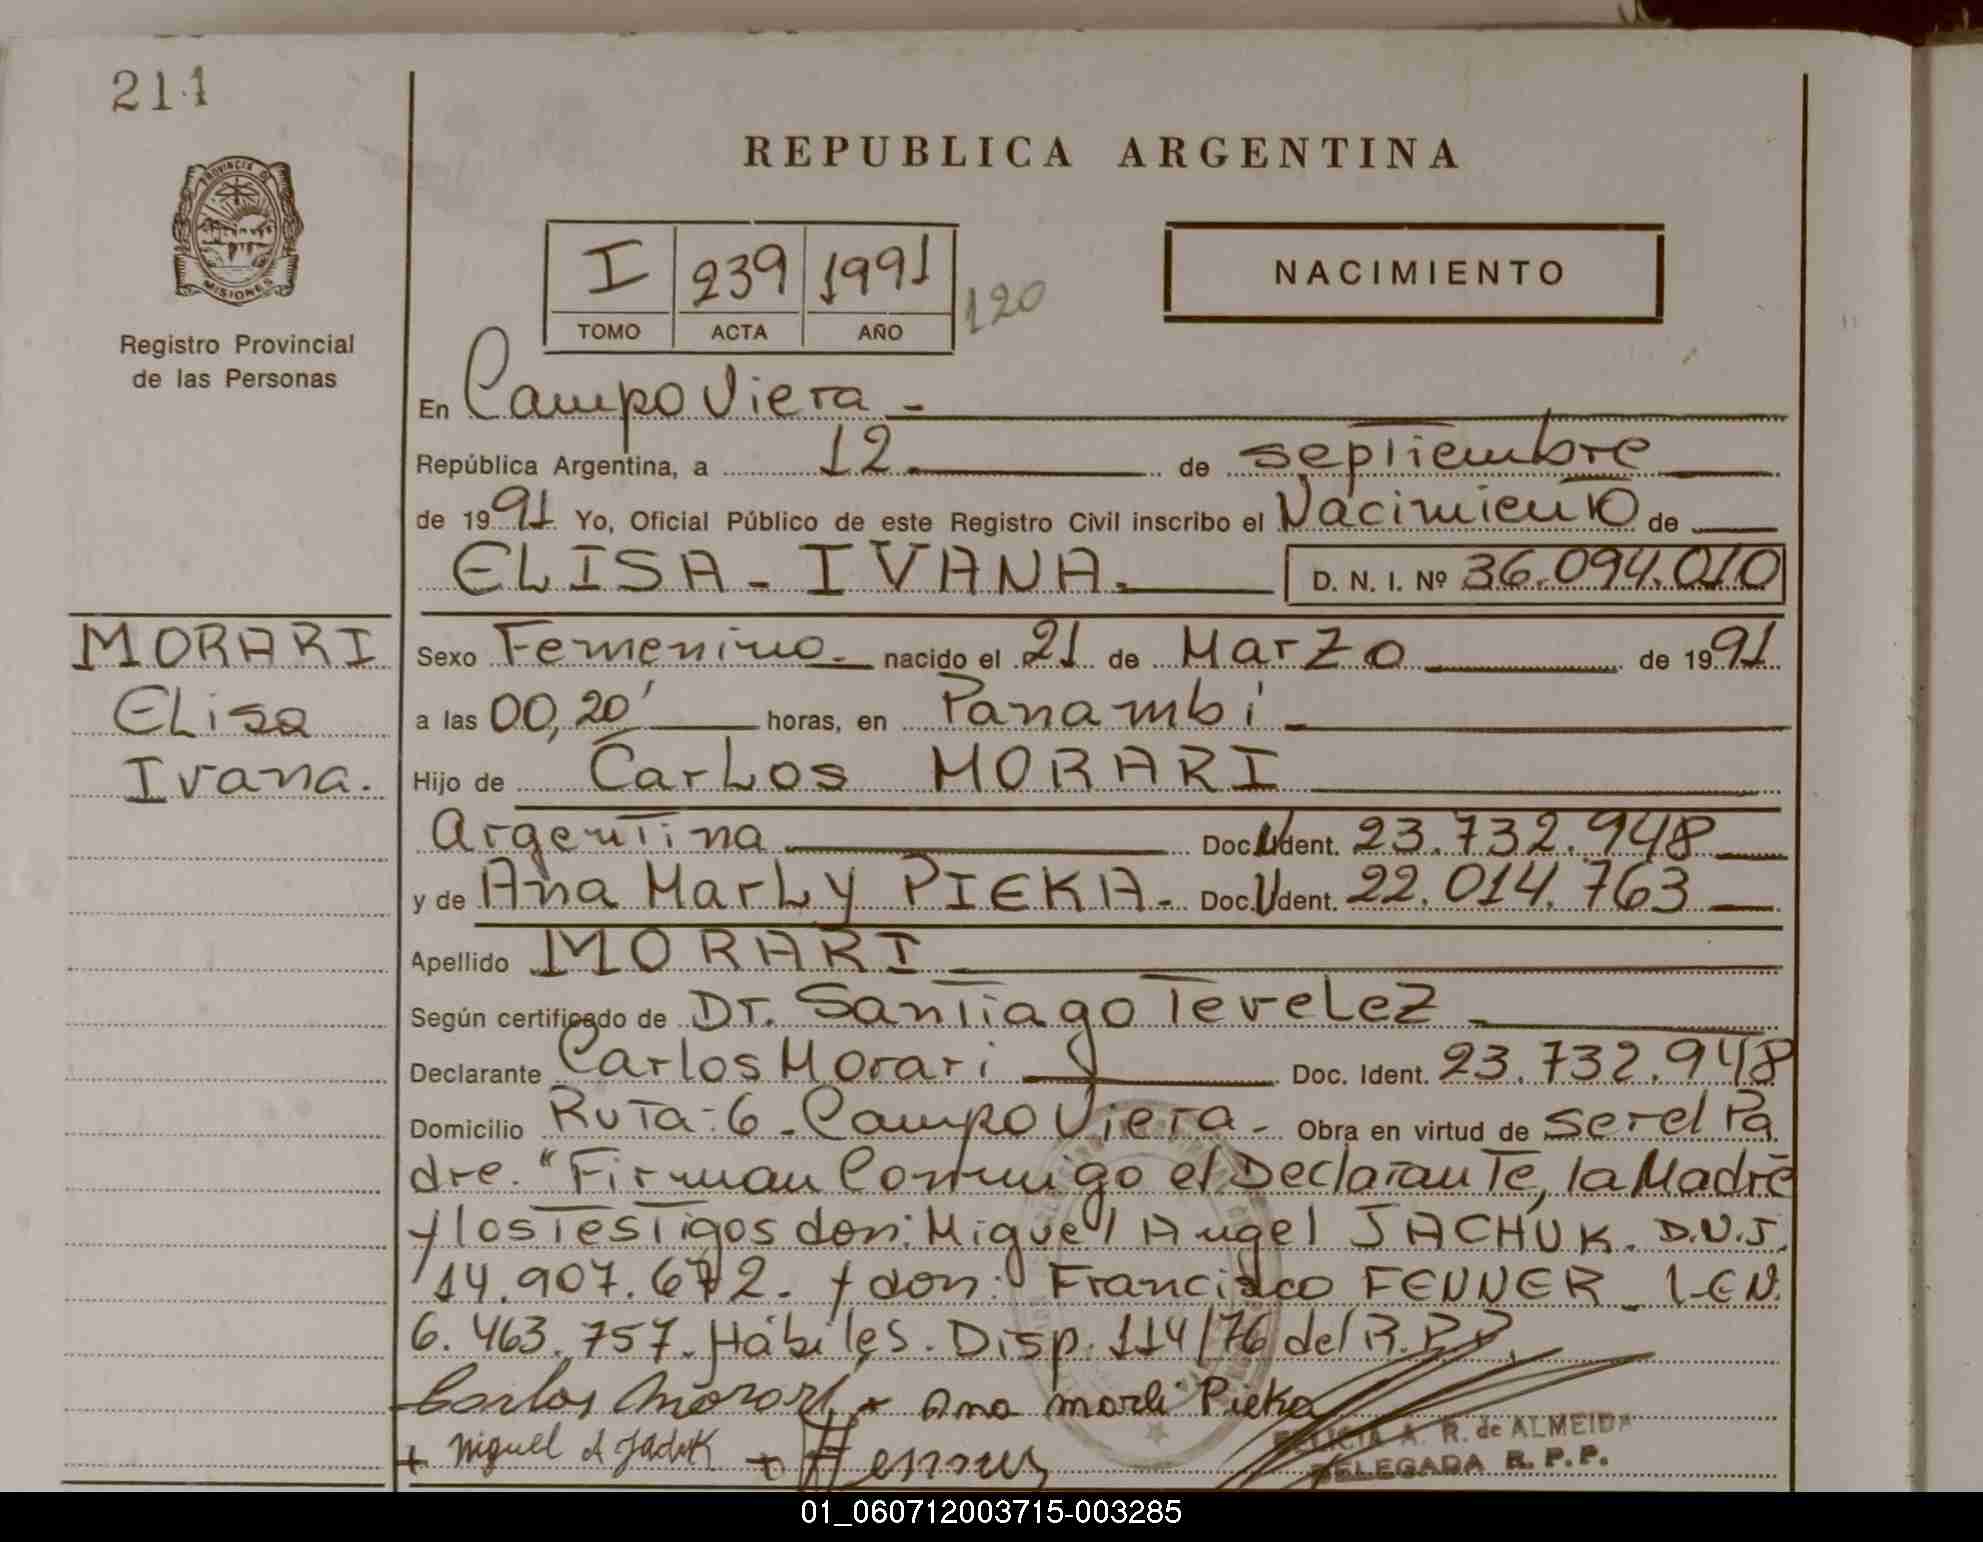 211
PROVINCIA DE
MISIONES
Registro Provincial
de las Personas
REPUBLICA ARGENTINA
I 239 1991
TOMO ACTA AÑO
120
NACIMIENTO
En Campo Viera -
República Argentina, a 12 de septiembre
de 1991 Yo, Oficial Público de este Registro Civil inscribo el Nacimiento de
ELISA - IVANA. D. N. I. Nº 36.094.010
MORARI
Elisa
Ivana.
Sexo Femenino. nacido el 21 de Marzo de 1991
a las 00,20' horas, en Panambí
Hijo de Carlos MORARI
Argentina Doc. Ident. 23.732.948
y de Ana Marly PIEKA. Doc. Ident. 22.014.763
Apellido MORARI
Según certificado de Dr. Santiago Tevelez
Declarante Carlos Morari Doc. Ident. 23.732.948
Domicilio Ruta: 6 - Campo Viera - Obra en virtud de ser el Pa
dre. "Firman Conmigo el Declarante, la Madre
y los Testigos don: Miguel Angel JACHUK. D.N.I.
14.907.672. y don: Francisco FENNER - L.E.N.
6.463.757. Hábiles. Disp. 114/76 del R.P.P.
Carlos Morari + Ana marli Pieka
+ Miguel A Jachuk +
FELICIA A. R. de ALMEIDA
DELEGADA R. P. P.
01_060712003715-003285